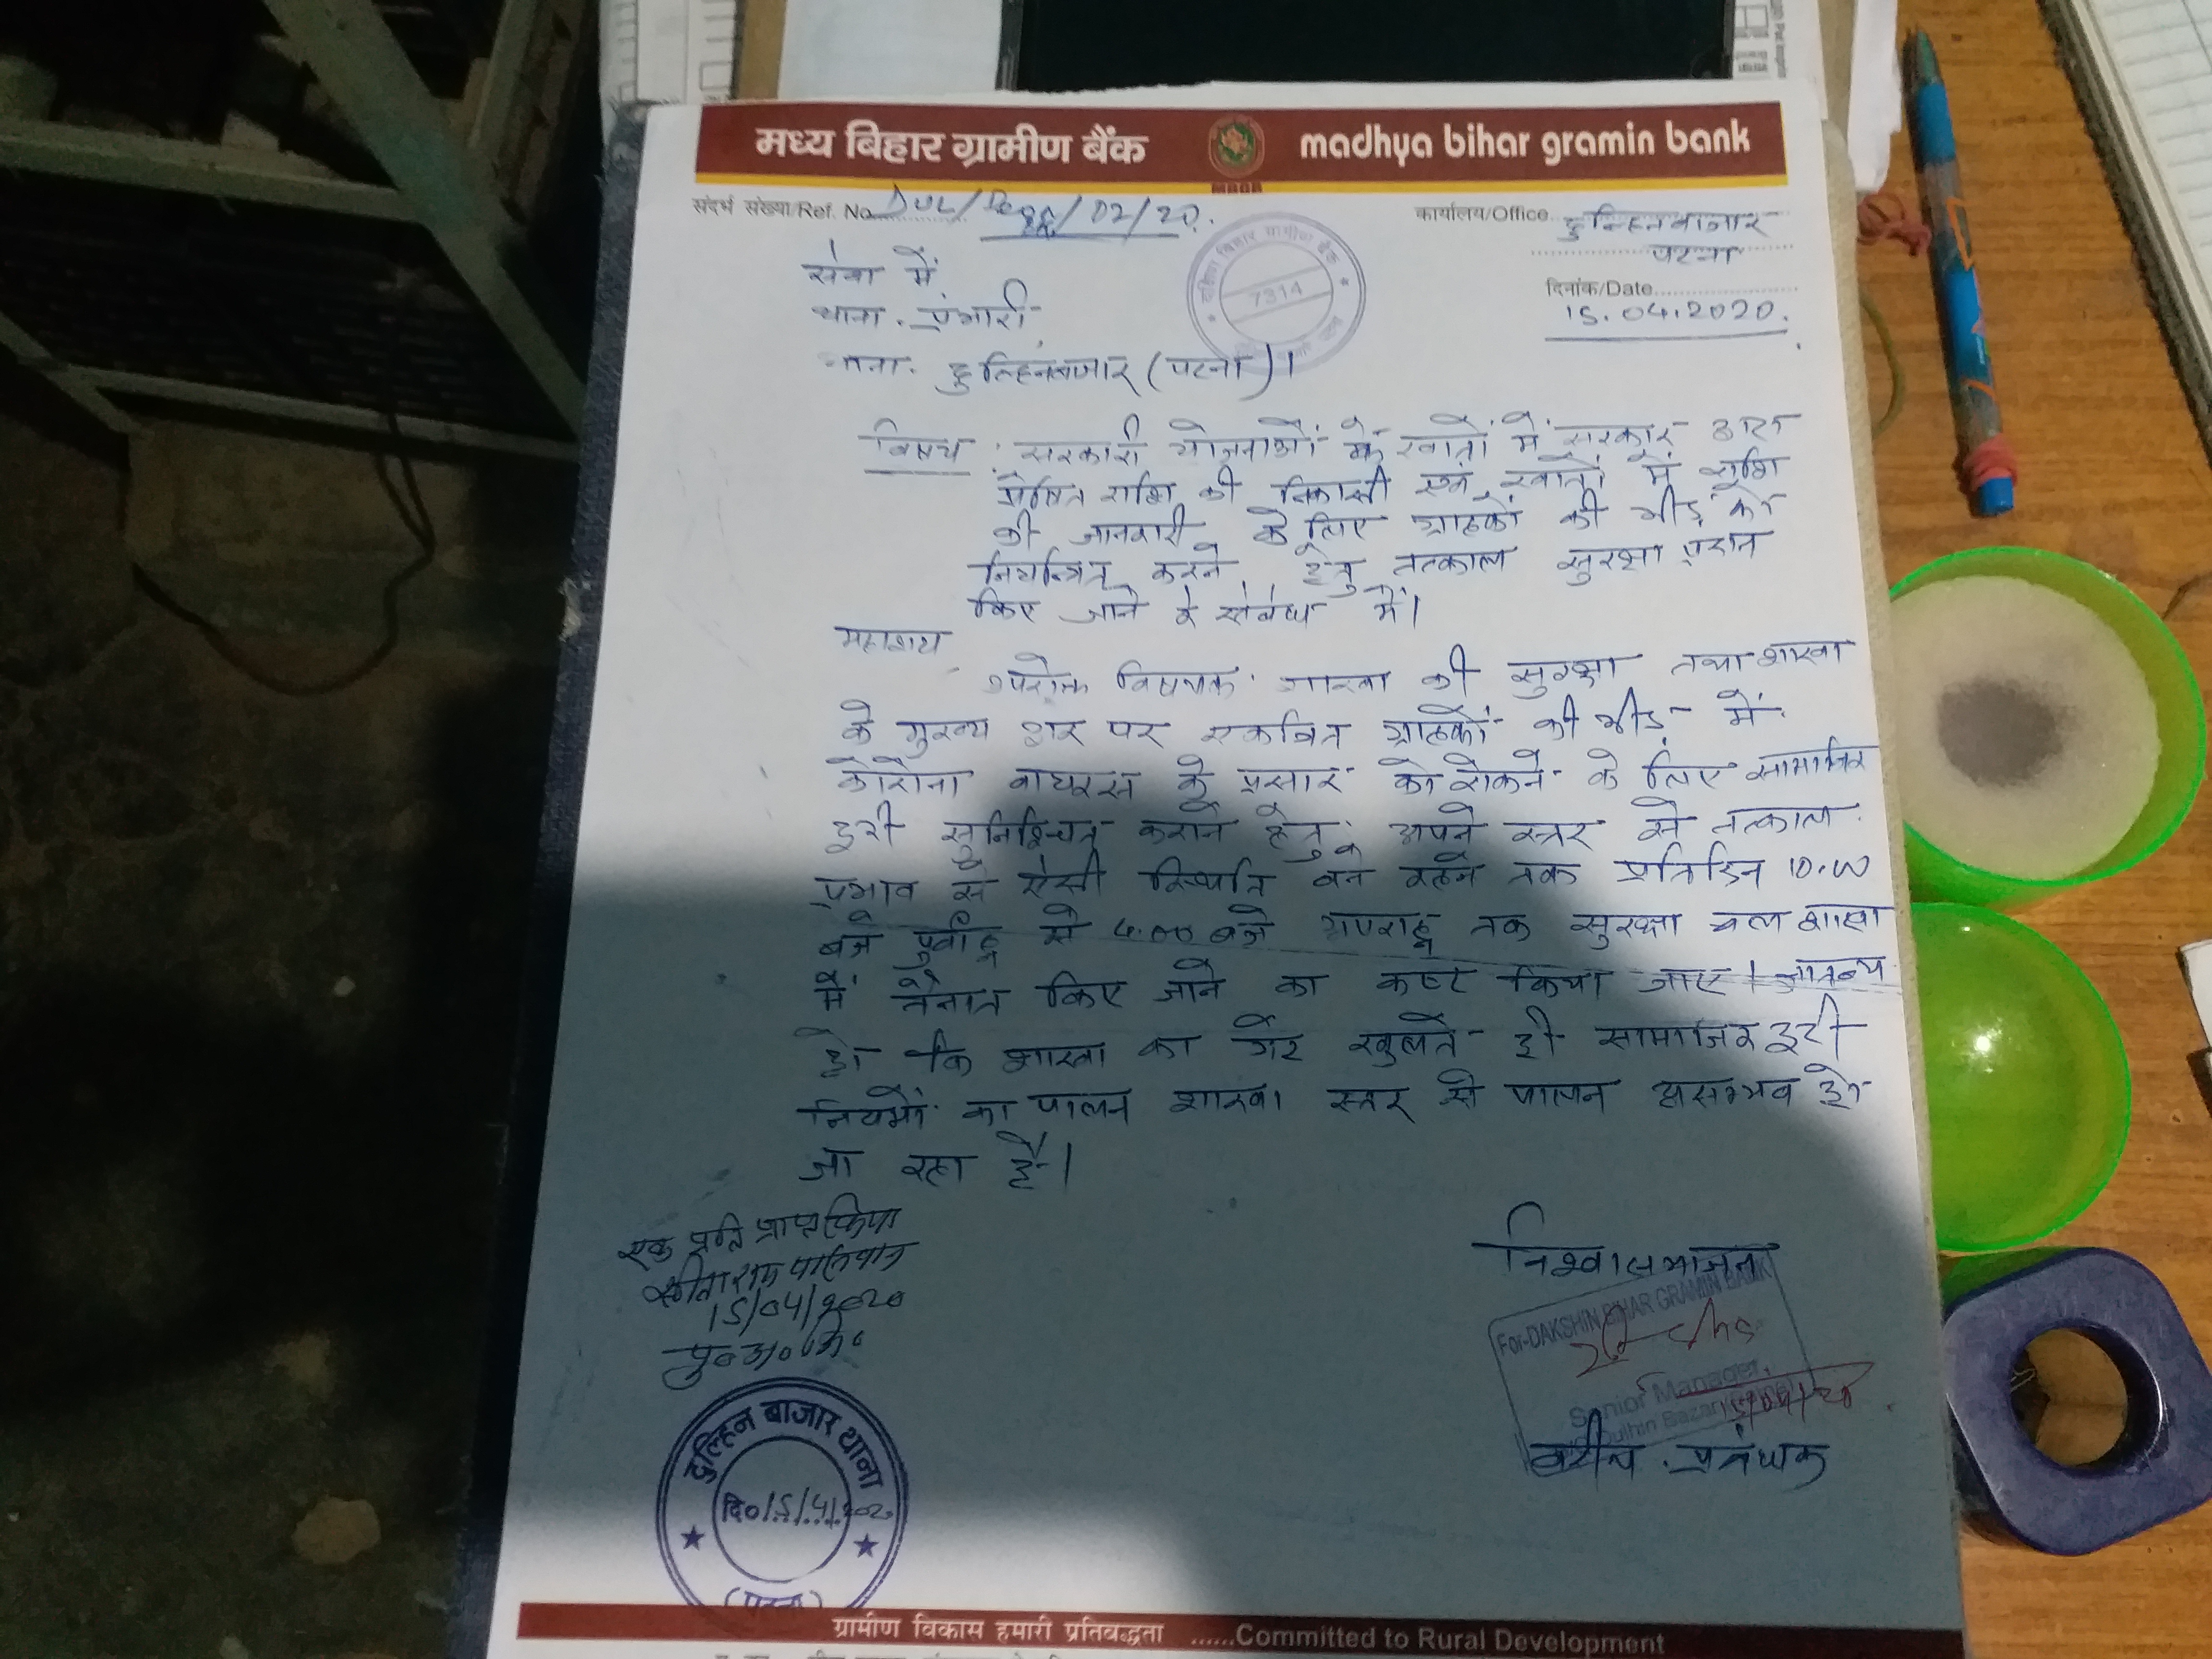 मध्य बिहार ग्रामीण बैंक madhya bihar gramin bank
संदर्भ संख्या/Ref. No. DUL/ /02/20. कार्यालय/Office दुल्हिनबाजार
पटना
दिनांक/Date
15.04.2020.
सेवा में
थाना प्रभारी
थाना दुल्हिनबाजार (पटना)।
7314
विषय : सरकारी योजनाओं के खातों में सरकार द्वारा
प्रेषित राशि की निकासी एवं खातों में राशि
की जानकारी के लिए ग्राहकों की भीड़ को
नियंत्रित करने हेतु तत्काल सुरक्षा प्रदान
किए जाने के संबंध में।
महाशय
उपरोक्त विषयक शाखा की सुरक्षा तथा शाखा
के मुख्य द्वार पर एकत्रित ग्राहकों की भीड़ में
कोरोना वायरस के प्रसार को रोकने के लिए सामाजिक
दूरी सुनिश्चित कराने हेतु अपने स्तर से तत्काल
प्रभाव से संकट बने रहने तक प्रतिदिन 10.00
बजे पूर्वाह्न से 4.00 बजे अपराह्न तक सुरक्षा बल शाखा
में तैनात किए जाने का कष्ट किया जाए।
हो कि शाखा का गेट खुलते ही सामाजिक दूरी
नियमों का पालन शाखा स्तर से पालन असम्भव हो
जा रहा है।
विश्वासभाजन
एक प्रति प्राप्त किया
15/04/2020
For-DAKSHIN BIHAR GRAMIN BANK
Senior Manager
Dulhin Bazar
वरीय प्रबंधक
दुल्हिन बाजार थाना
दि० 15/4/2020
(पटना)
ग्रामीण विकास हमारी प्रतिबद्धता ......Committed to Rural Development